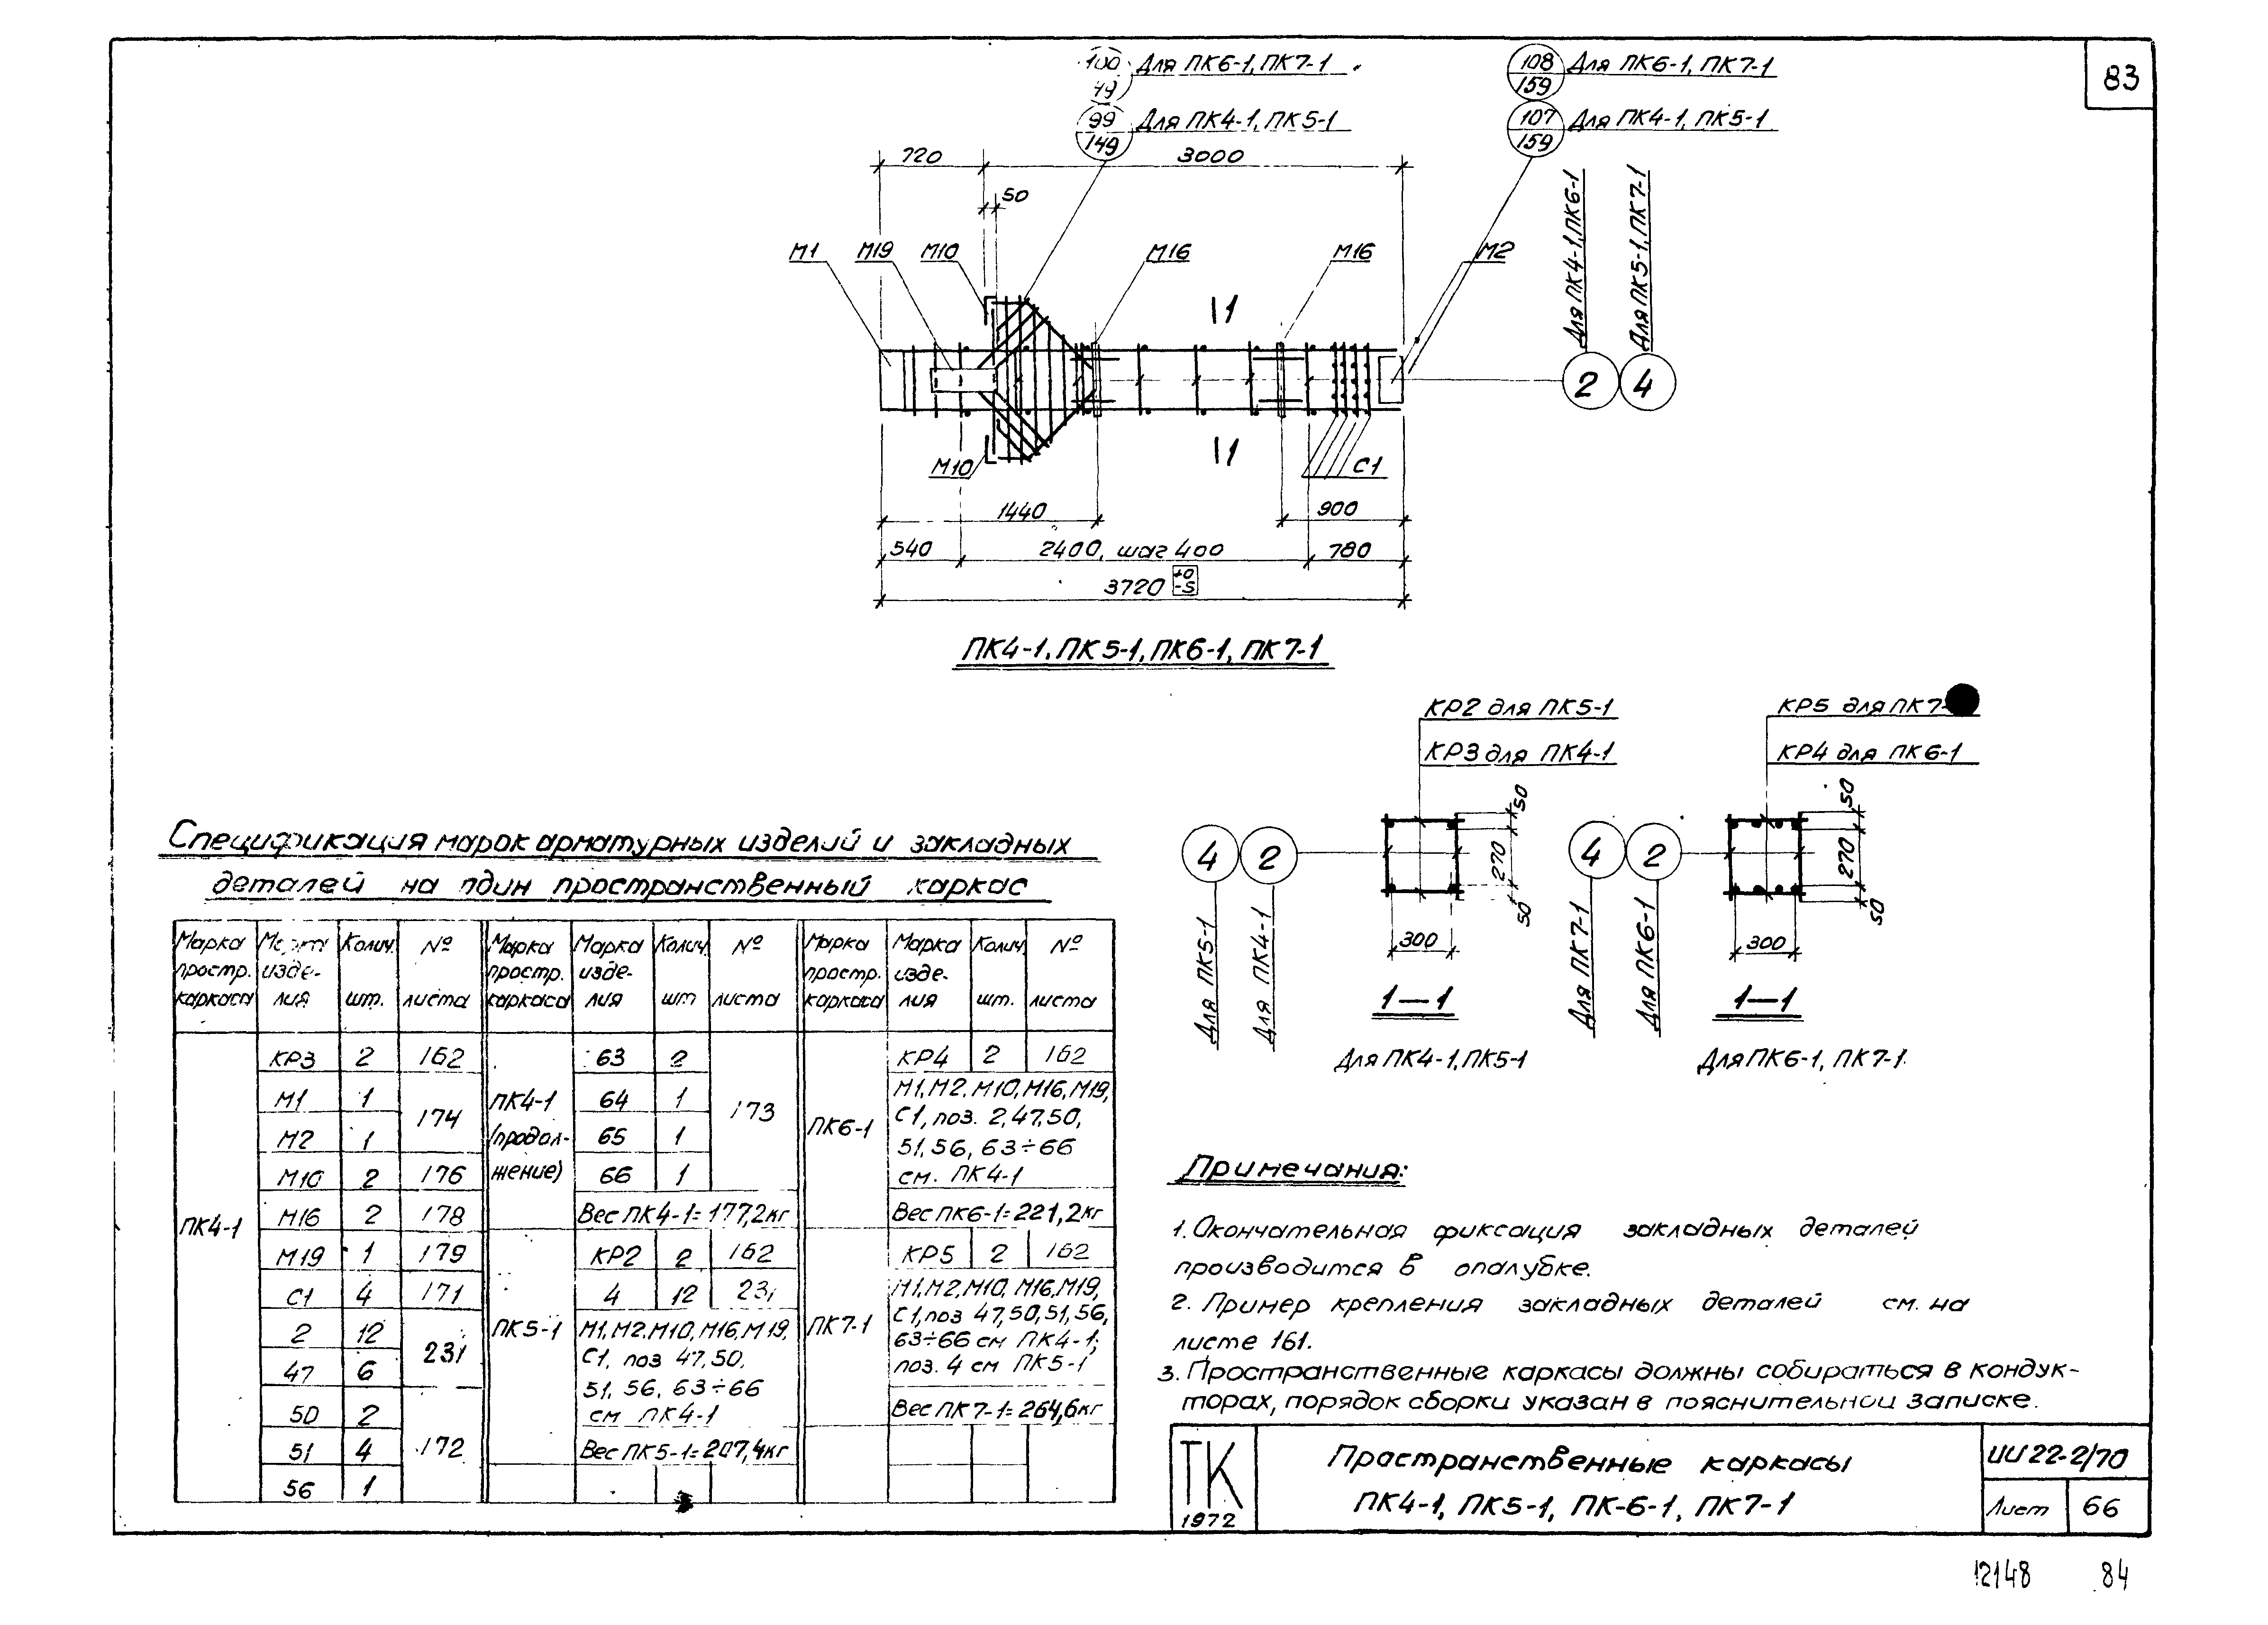 83
100 Для ПК6-1, ПК7-1
108 Для ПК6-1, ПК7-1
159
99 Для ПК4-1, ПК5-1
149
107 Для ПК4-1, ПК5-1
159
720
3000
50
М1
М19
М10
М16
М16
М2
Для ПК4-1, ПК6-1
Для ПК5-1, ПК7-1
1
2
4
1
М10
С1
1440
900
540
2400, шаг 400
780
3720 +0 -5
ПК4-1, ПК5-1, ПК6-1, ПК7-1
КР2 для ПК5-1
КР3 для ПК4-1
4
2
50
270
50
300
Для ПК5-1
Для ПК4-1
1—1
Для ПК4-1, ПК5-1
КР5 для ПК7-
КР4 для ПК6-1
4
2
50
270
50
300
Для ПК7-1
Для ПК6-1
1—1
Для ПК6-1, ПК7-1
Спецификация марок арматурных изделий и закладных
деталей на один пространственный каркас
Марка простр. каркаса | Марка изделия | Колич. шт. | № листа | Марка простр. каркаса | Марка изде-лия | Колич. шт | № листа | Марка простр. каркаса | Марка изде-лия | Колич. шт. | № листа
ПК4-1
КР3 2 162
М1 1 174
М2 1
М10 2 176
М16 2 178
М19 1 179
С1 4 171
2 12 231
47 6
50 2 172
51 4
56 1
ПК4-1
(продол-
жение)
63 2 173
64 1
65 1
66 1
Вес ПК4-1=177,2кг
ПК5-1
КР2 2 162
4 12 231
М1, М2, М10, М16, М19,
С1, поз 47, 50,
51, 56, 63÷66
см ПК4-1
Вес ПК5-1=207,4кг
ПК6-1
КР4 2 162
М1, М2, М10, М16, М19,
С1, поз. 2, 47, 50,
51, 56, 63÷66
см. ПК4-1
Вес ПК6-1=221,2кг
ПК7-1
КР5 2 162
М1, М2, М10, М16, М19,
С1, поз 47, 50, 51, 56,
63÷66 см ПК4-1;
поз. 4 см ПК5-1
Вес ПК7-1=264,6кг
Примечания:
1. Окончательная фиксация закладных деталей
производится в опалубке.
2. Пример крепления закладных деталей см. на
листе 161.
3. Пространственные каркасы должны собираться в кондук-
торах, порядок сборки указан в пояснительной записке.
ТК
1972
Пространственные каркасы
ПК4-1, ПК5-1, ПК-6-1, ПК7-1
ИИ 22-2/70
Лист 66
12148 84